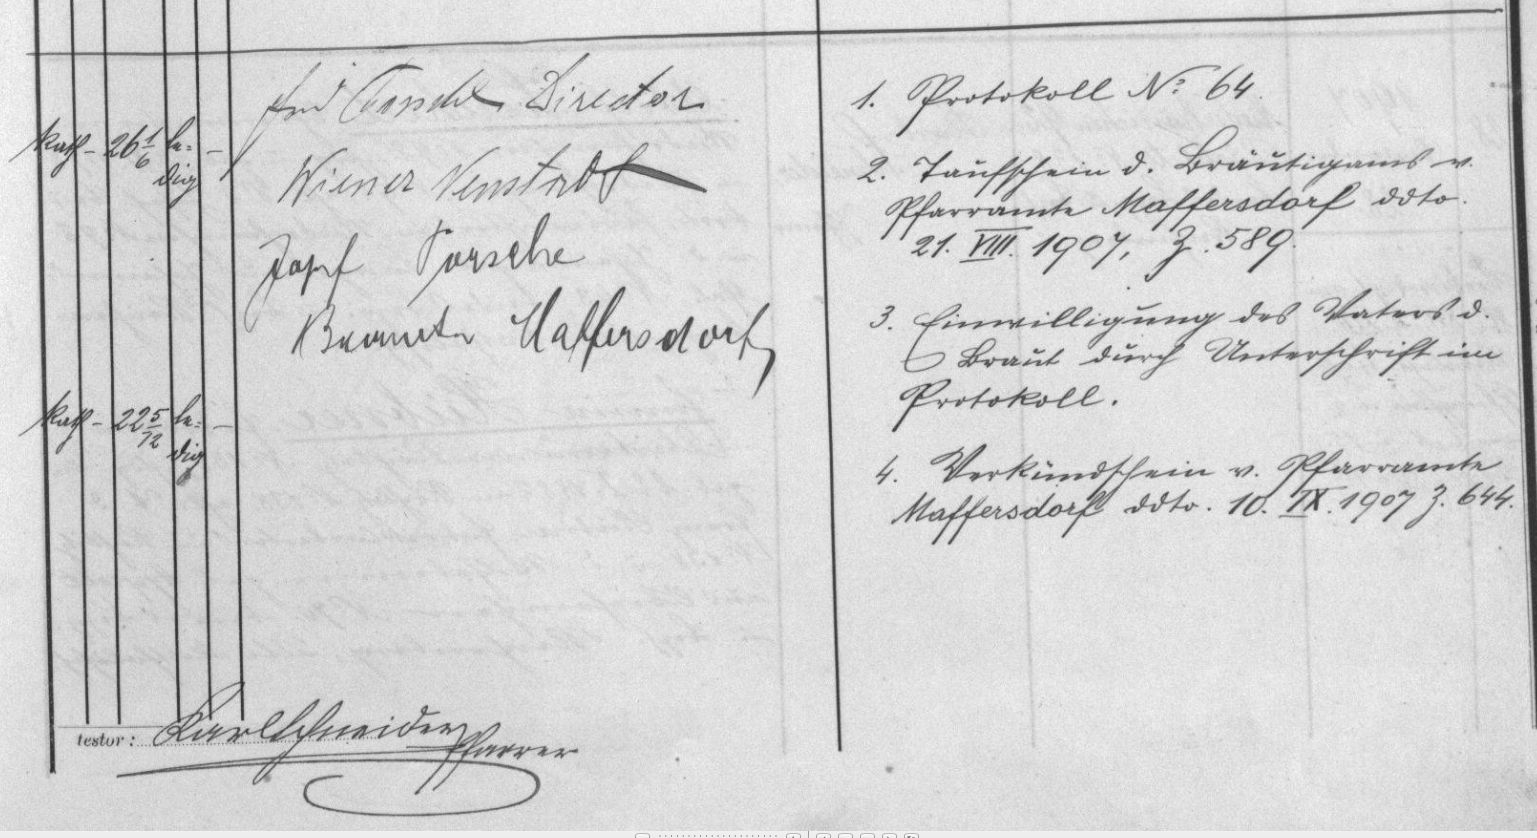 kath – 26 1/6 le- –
dig
Ferd Porsche Director
Wiener Neustadt
Josef Porsche
Beamter Maffersdorf
kath – 22 5/12 le- –
dig
testor: Karl Schneider
Pfarrer
1. Protokoll No 64.
2. Taufschein d. Bräutigams v.
Pfarramte Maffersdorf ddto.
21. VIII. 1907, Z. 589.
3. Einwilligung des Vaters d.
Braut durch Unterschrift im
Protokoll.
4. Verkündschein v. Pfarramte
Maffersdorf ddto. 10. IX. 1907 Z. 644.